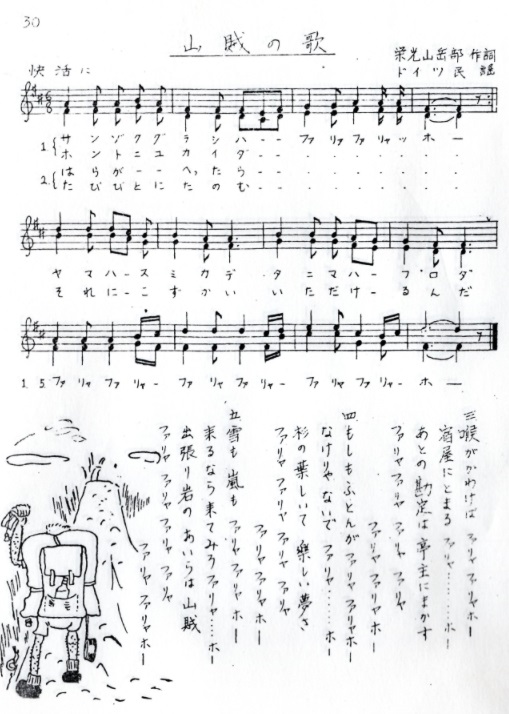 30
山賊の歌
栄光山岳部 作詞
快活に
ドイツ民謡
1. サンゾクグラシハ-- ファリァファリャッホー
ホントニユカイダ-- . . . . . .
2. はらが--へったら-- . . . . . .
たびびとにたのむ-- . . . . . .
ヤマハ-スミカデ タニマハ-フロダ
それに-こずかい いただけ-るんだ
1. 5. ファリャファリャー ファリャファリャー ファリャファリャー ホー
三、喉がかわけば ファリャ
宿屋にとまる ファリャ……ホー
あとの勘定は亭主にまかす
ファリャ ファリャ ファリャ ファリャ
ファリャ ファリャホー
四、もしもふとんが ファリャ ファリャホー
なけりゃないで ファリャ……ホー
杉の葉しいて 楽しい夢さ
ファリャ ファリャ ファリャ ファリャ
ファリャ ファリャホー
五、雪も嵐も ファリャ ファリャホー
来るなら来てみろ ファリャ……ホー
出張り岩のあいらは山賊
ファリャ ファリャ ファリャ ファリャ
ファリャ ファリャホー